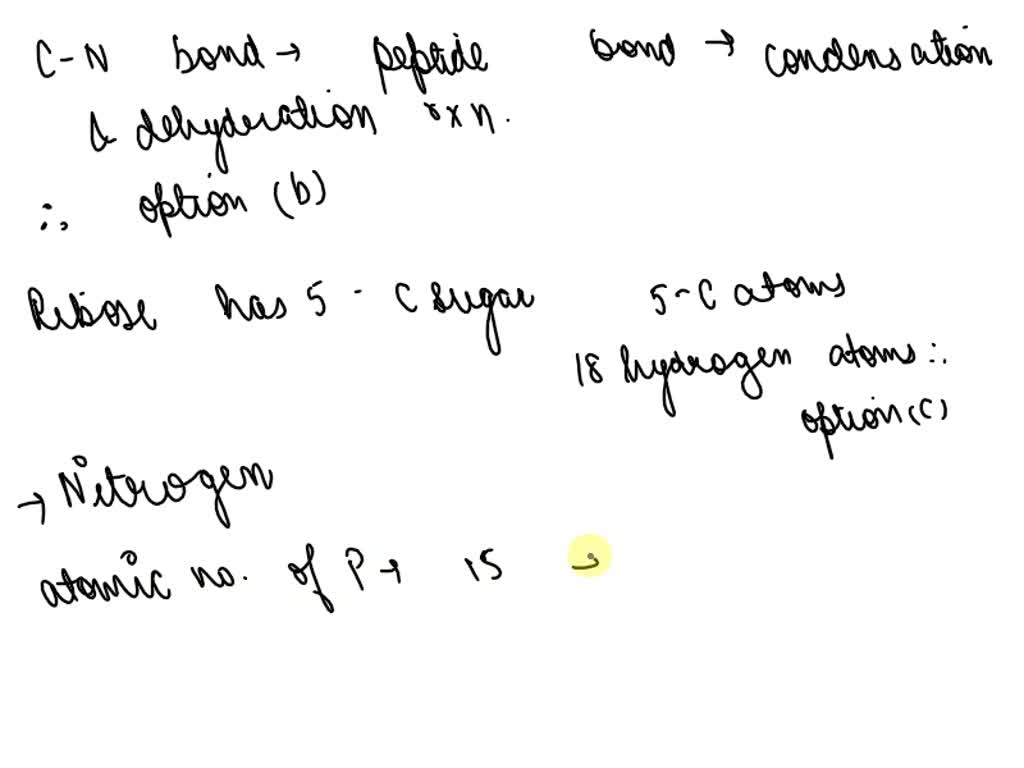 C-N bond → peptide bond → condensation
& dehyderation rxn.
∴ option (b)
Ribose has 5 - C sugar
5-C atoms
18 hydrogen atoms ∴
option (c)
→ Nitrogen
atomic no. of P → 15 →